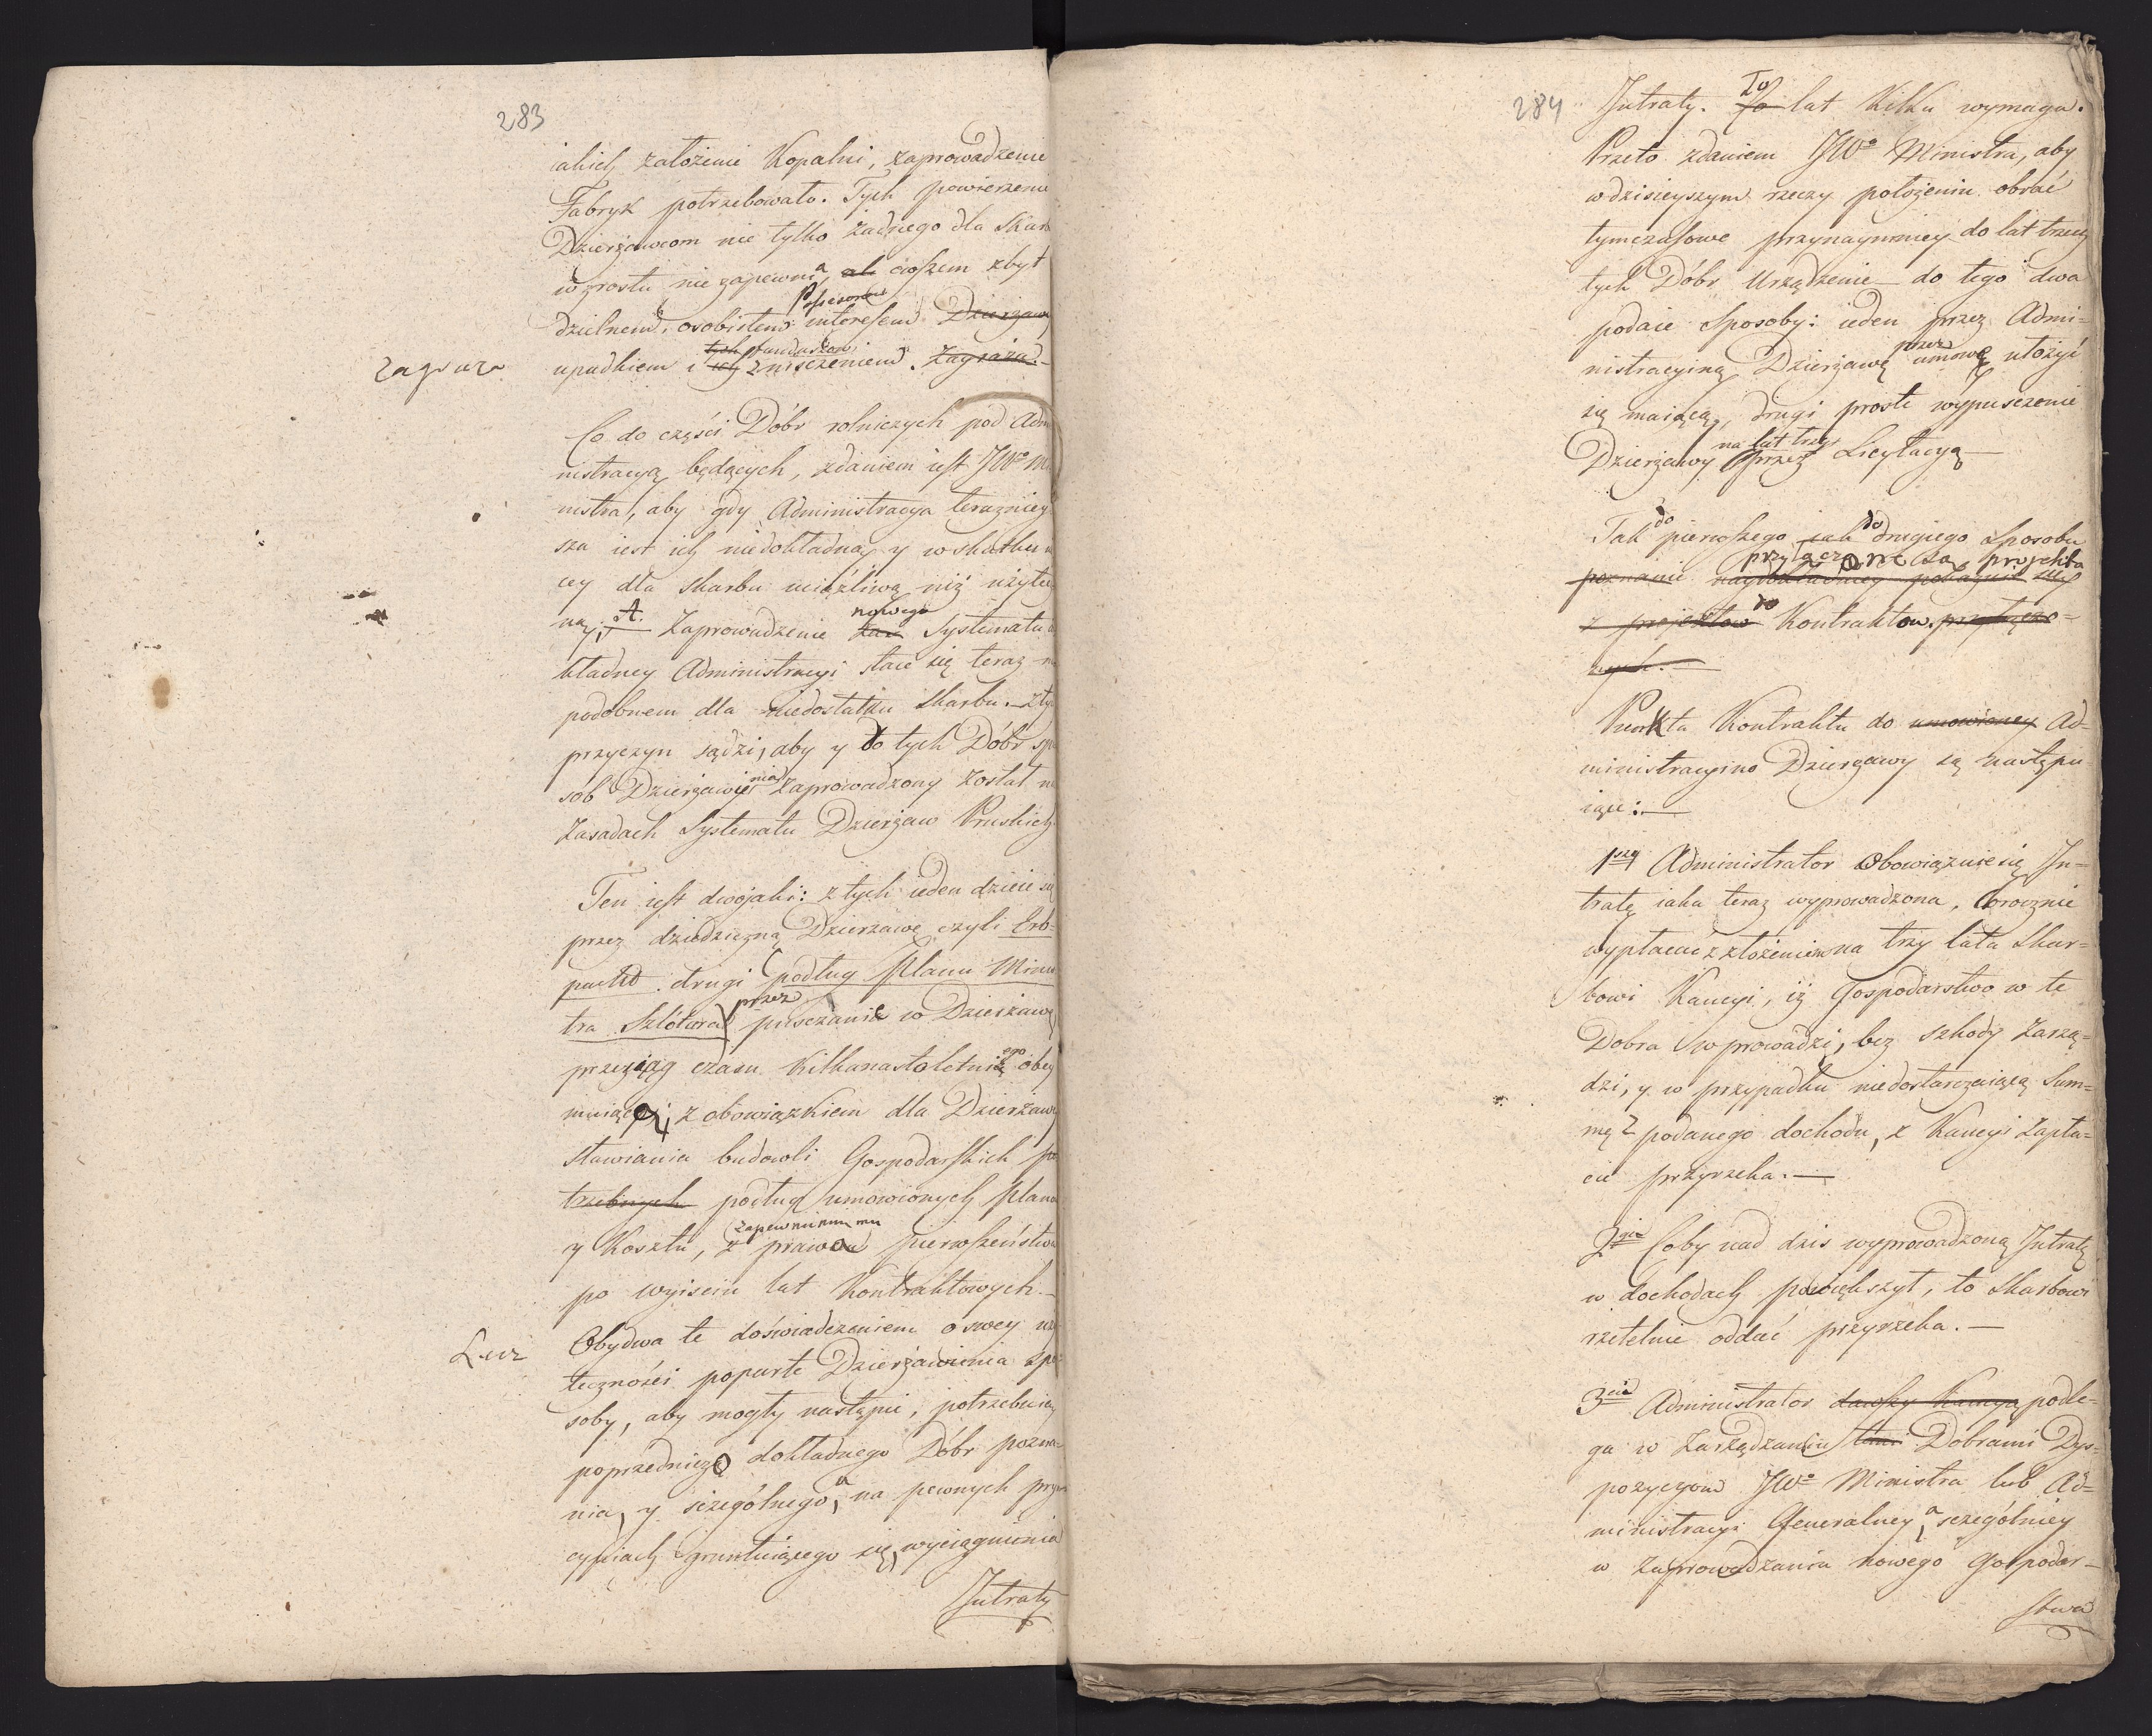 283
iakich założenie Kopalni, zaprowadzenie
Fabryk potrzebowało. Tych powierzenie
Dzierżawcom nie tylko żadnego dla Skarb
wzrostu nie zapewnia, ale owszem zbyt
Possessorów
dzielnem, osobistem interessem Dzierżawc
tych funduszów
zagraża
upadkiem i ich zniszczeniem. Zagraża.
Co do części Dóbr rolniczych pod Admi
nistracyą będących, zdaniem iest JWo Mi
nistra, aby gdy Administracya teraźniey
sza iest ich niedokładną y w skutku
cey dla skarbu uciążliwą niż użytec
ną; A. Zaprowadzenie zaś nowego Systematu
kładney Administracyi staie się teraz
podobnem dla niedostatku Skarbu. z ty
przyczyn sądzi, aby y do tych Dóbr spo
sób Dzierżawienia zaprowadzony został n
zasadach Systematu Dzierżaw Pruskich
Ten iest dwojaki: z tych ieden dzieie się
przez dziedziczną Dzierzawę czyli Erb-
pacht. drugi (podług planu Minis
tra Szlótera) przez pusczanie w Dzierżawę
przeciąg czasu kilkanastoletniego obey
muiącą; z obowiązkiem dla Dzierżawy
stawiania budowli Gospodarskich po
trzebnych podług umowionych planów
zapewnieniem mu
y Kosztu, z prawa pierwszeństwa
po wyiściu lat Kontraktowych.
Lecz
Obydwa te doświadczeniem o swey uży
teczności poparte Dzierżawienia spo
soby, aby mogły nastąpić, potrzebuią
poprzedniego dokładnego Dóbr pozna-
nia, y sczególnego, a na pewnych pryn
cypiach gruntuiącego się, wyciągnienia
Intraty
284
Intraty. To lat kilku wymaga.
Przeto zdaniem JWo Ministra, aby
w dzisieyszym rzeczy położeniu obrać
tymczasowe przynaymniey do lat trzech
tych Dóbr Urządzenie do tego dwa
podaie sposoby: ieden przez Admi-
nistracyiną Dzierżawę przez umowę ułożyć
się maiącą, drugi proste wypusczenie
Dzierżawy na lat trzy przez Licytacyą
Tak do pierwszego jak do drugiego sposobu
przyłączone są projekta
poznanie naydokładniey pokazuie się
z projektów do Kontraktow. przyłączo-
nych.
Punkta Kontraktu do umowioney Ad-
ministracyino Dzierżawy są następu
iące:
1szy Administrator Obowiązuie się In-
tratę iaka teraz wyprowadzona, corocznie
wypłacać z złożeniem na trzy lata Skar-
bowi Kaucyi, iż Gospodarstwo w te
Dobra wprowadzi, bez szkody zarzą-
dzi, y w przypadku niedostarczaiącą Sum-
mę z podanego dochodu, z Kaucyi zapła-
cić przyrzeka.
2gie Coby nad dzis wyprowadzoną Intratę
w dochodach powiększył, to Skarbowi
rzetelnie oddać przyrzeka.
3cie Administrator dawszy Kaucyą podle-
ga w Zarządzaniu temi Dobrami Dys-
pozycyom JWo Ministra lub Ad-
ministracyi Generalney, a sczególniey
w zaprowadzaniu nowego Gospodar-
stwa